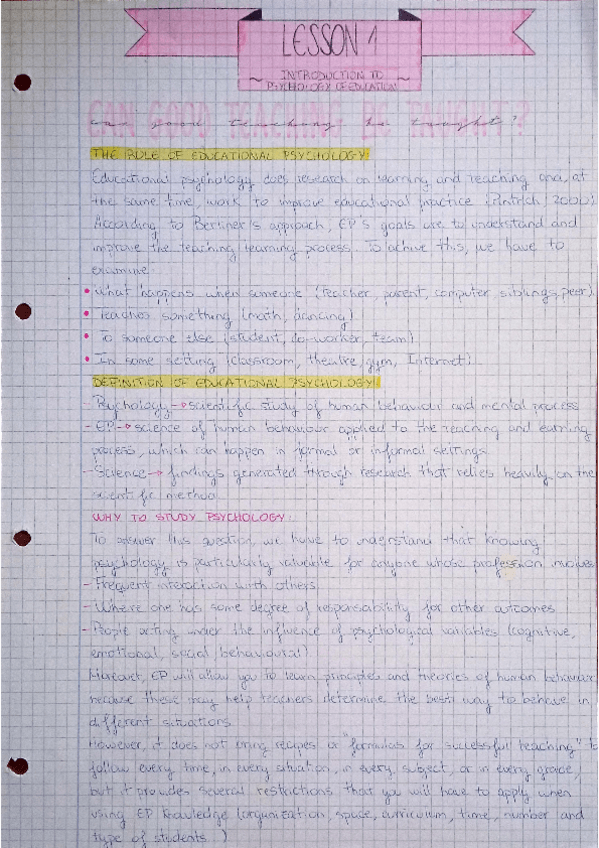 LESSON 1
~ INTRODUCTION TO ~
PSYCHOLOGY OF EDUCATION
CAN GOOD TEACHING BE TAUGHT?
can good teaching be taught?
THE ROLE OF EDUCATIONAL PSYCHOLOGY:
Educational psychology does research on learning and teaching and, at
the same time, work to improve educational practice (Pintrich, 2000)
According to Berliner's approach, EP's goals are to understand and
improve the teaching learning process. To achive this, we have to
examine:
• What happens when someone (teacher, parent, computer, siblings, peer)
• Teaches something (math, dancing)
• To someone else (student, co-worker, team)
• In some setting (classroom, theatre, gym, Internet)
DEFINITION OF EDUCATIONAL PSYCHOLOGY:
- Psychology → scientific study of human behaviour and mental process
- EP → science of human behaviour applied to the teaching and learning
process, which can happen in formal or informal settings.
- Science → findings generated through research that relies heavily on the
scientific method
WHY TO STUDY PSYCHOLOGY:
To answer this question, we have to understand that knowing
psychology is particularly valuable for anyone whose profession involves
- Frequent interaction with others
- Where one has some degree of responsability for other outcomes
- People acting under the influence of psychological variables (cognitive,
emotional, social, behavioural)
Moreover, EP will allow you to learn principles and theories of human behaviour
because these may help teachers determine the best way to behave in
different situations.
However, it does not bring recipes or "formulas for successful teaching" to
follow every time, in every situation, in every subject, or in every grade,
but it provides several restrictions that you will have to apply when
using EP knowledge (organization, space, curriculum, time, number and
type of students...)